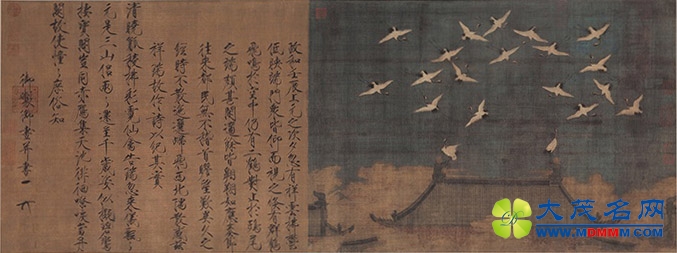 政和壬辰上元之次夕忽有祥雲拂鬱
低映端門衆皆仰而視之倏有群鶴
飛鳴於空中仍有二鶴對止於鴟尾
之端頗甚閑適餘皆翱翔如應奏節
往來都民無不稽首瞻望歎異久之
經時不散迤邐歸飛西北隅散感茲
祥瑞故作詩以紀其實
清曉觚稜拂彩霓仙禽告瑞忽來儀飄〻
元是三山侶兩〻還呈千歲姿似擬碧鸞
棲寶閣豈同赤鴈集天池徘徊嘹唳當丹
闕故使憧〻庶俗知
御製御畫并書
大茂名网
www.MDMMM.com